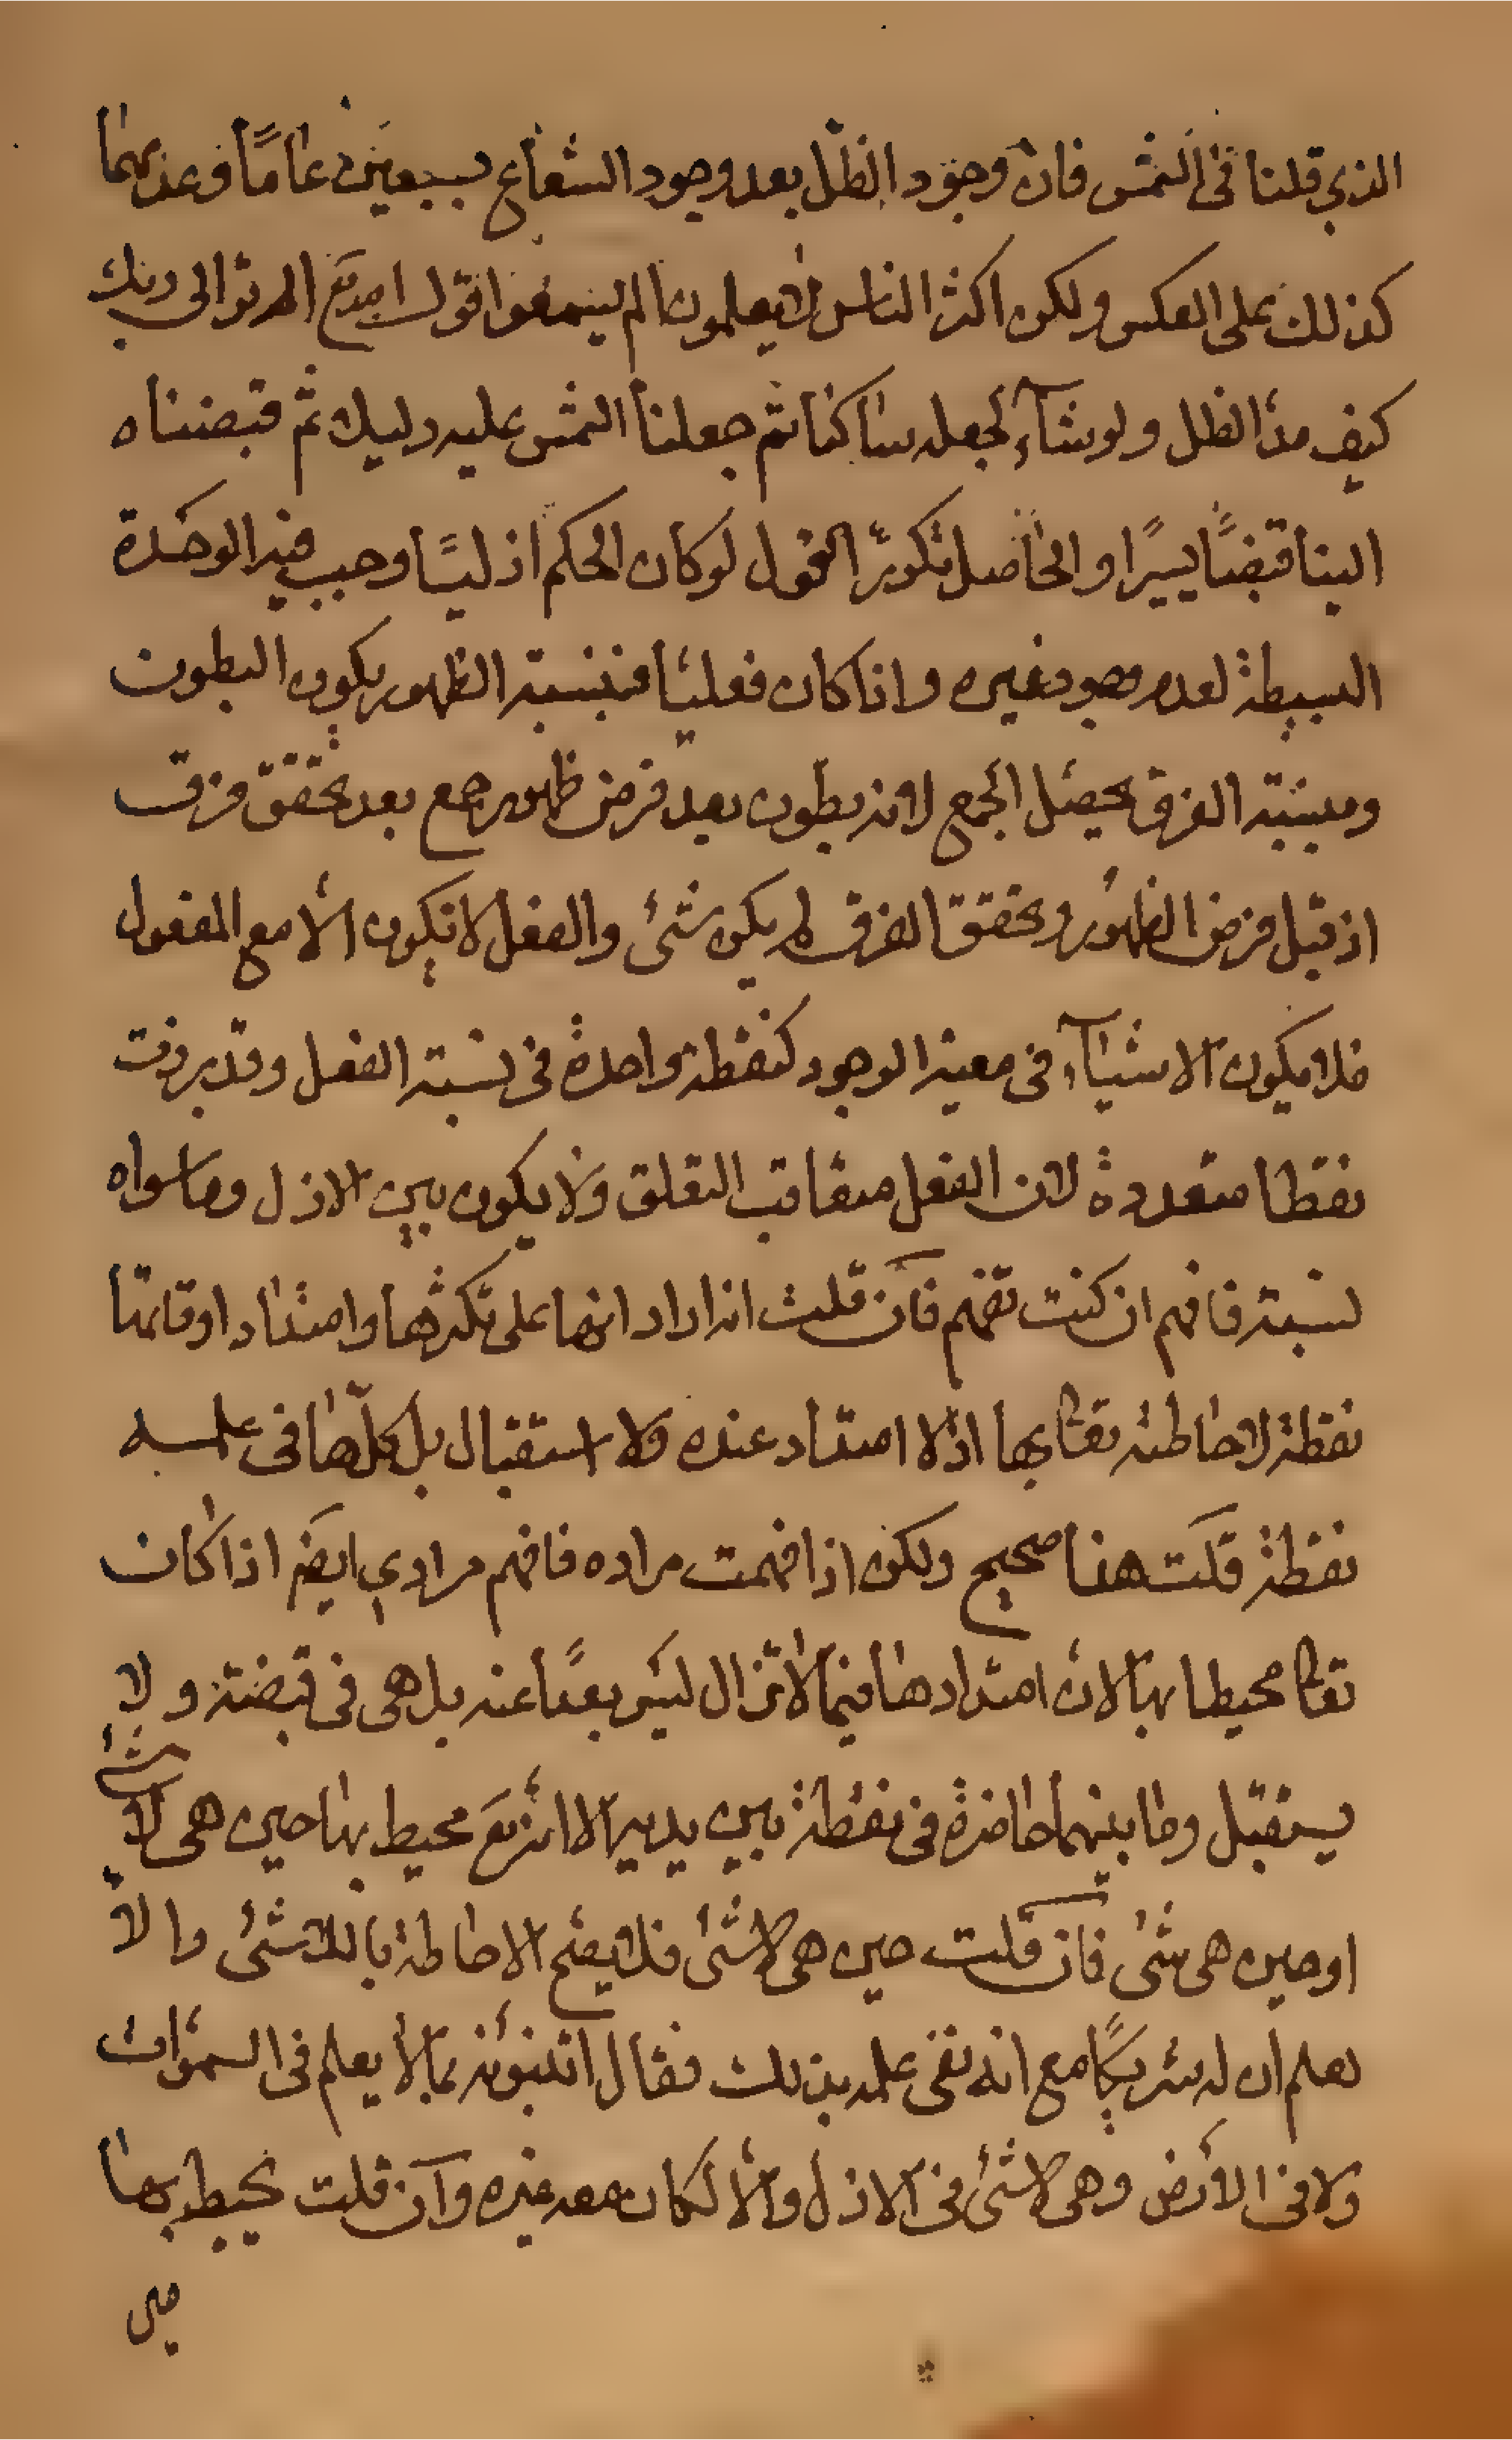 الذي قلنا في الشمس فان وجود الظل بعد وجود الشعاع بسبعين عاما وعدمهما
كذلك على العكس ولكن اكثر الناس لا يعلمون الم يسمعوا قول الله تع الم تر الى ربك
كيف مد الظل ولو شآء لجعله ساكنا ثم جعلنا الشمس عليه دليلا ثم قبضناه
الينا قبضًا يسيرًا والحاصل نكرّر القول لو كان الحكم ازليًا وجب فيه الوحدة
البسيطة لعدم وجود غيره واذا كان فعليا فبنسبة الظهور يكون البطون
وبنسبة الفرق يحصل الجمع لانه بطون بعد فرض ظهور جمع بعد تحقق فرق
اذ قبل فرض الظهور وتحقق الفرق لم يكن شئ والفعل لا يكون الا مع المفعول
فلا يكون الاشيآء في معية الوجود كنقطة واحدة في نسبة الفعل وقد برزت
نقطا متعددة لان الفعل متعاقب التعلق ولا يكون بين الازل وما سواه
نسبة فافهم ان كنت تفهم فان قلت انه اراد انها على تكثرها وامتداد اوقاتها
نقطة لاحاطته تعالى بها اذ لا امتداد عنده ولا استقبال بل كلها في علمه
نقطة قلت هذا صحيح ولكن اذا فهمت مراده فافهم مرادي ايضا اذا كان
تعالى محيطا بها لان امتدادها فيما لا تزال ليس بعدًا عنه بل هي في قبضته ولا
يستقبل وما بينهما حاضرة في نقطة بين يديه الا انه تع محيط بها حين هي لا شئ
او حين هي شئ فان قلت حين هي لا شئ فلا يصح الاحاطة باللاشئ والا
لعلم ان له شريكًا مع انه نفى علمه بذلك فقال اتنبئونه بما لا يعلم في السموات
ولا في الأرض وهي لا شئ في الازل والا لكان معه غيره وان قلت يحيط بها
حين